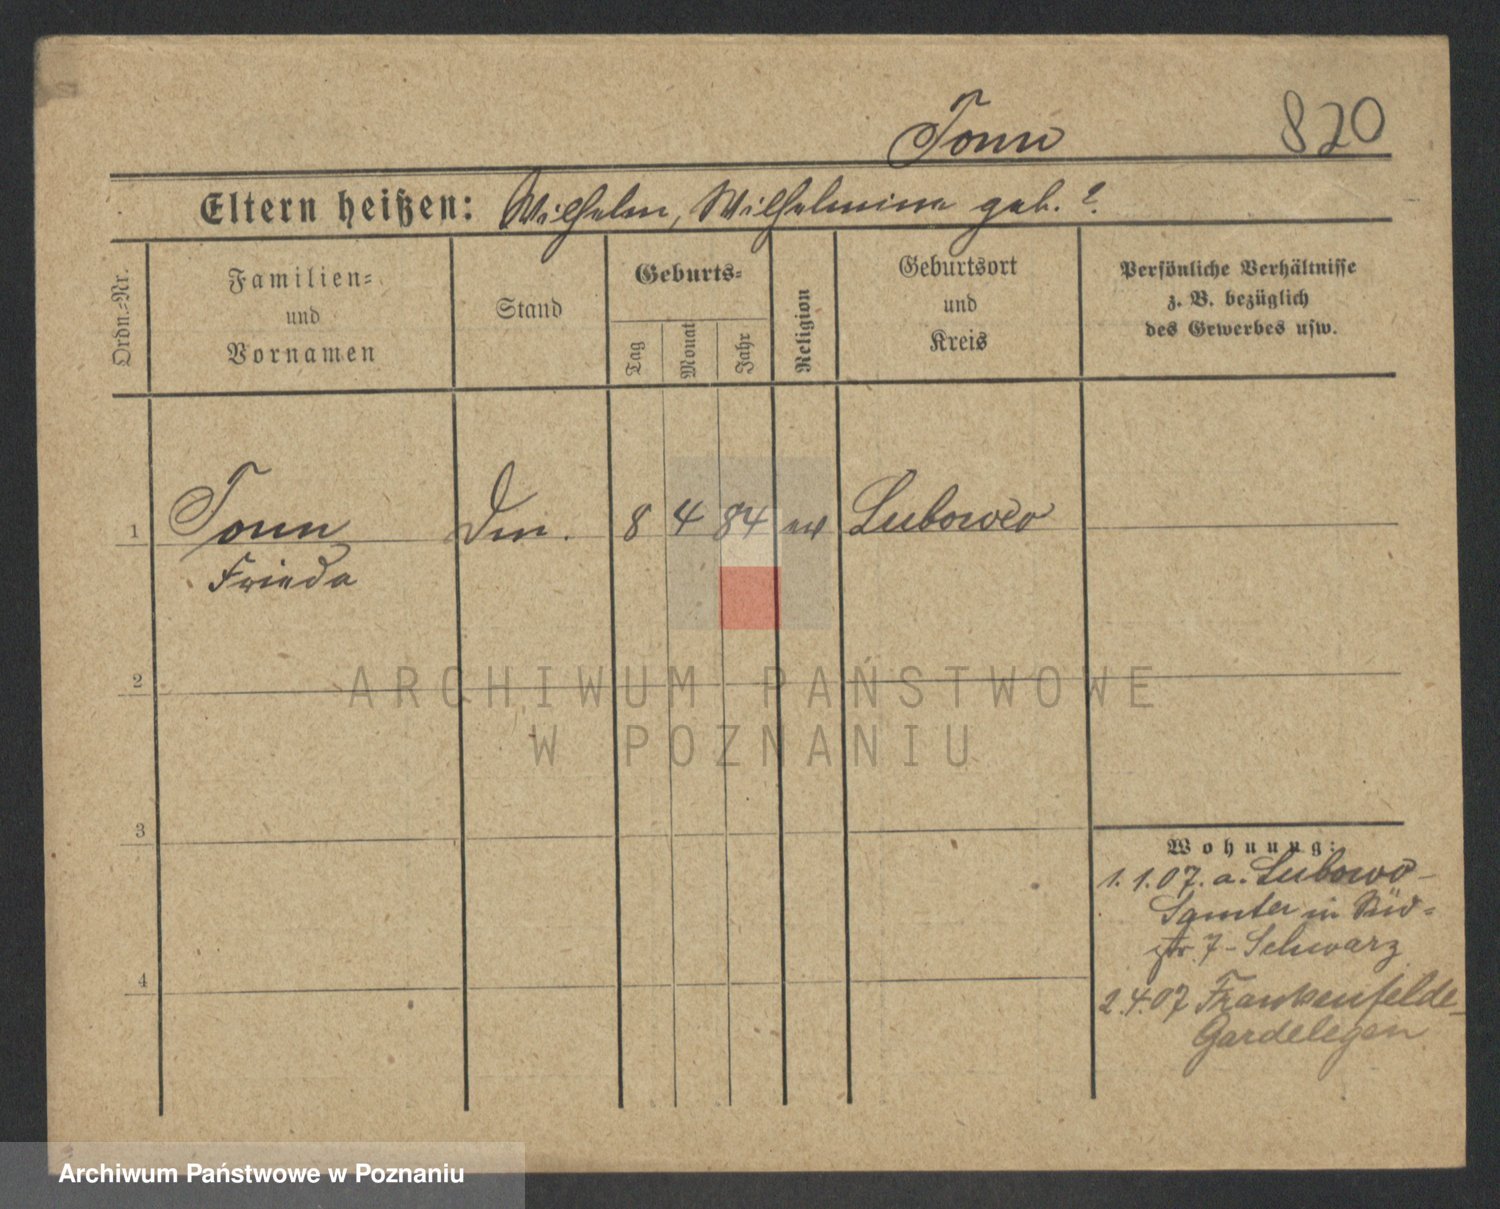 Tonn
820
Eltern heißen: Wilhelm, Wilhelmine geb. ?
Ordn.=Nr.
Familien=
und
Vornamen
Stand
Geburts=
Tag
Monat
Jahr
Religion
Geburtsort
und
Kreis
Persönliche Verhältnisse
z. B. bezüglich
des Erwerbes usw.
1
Tonn
Frieda
8 4 84 ev Lubowo
2
ARCHIWUM PAŃSTWOWE
W POZNANIU
3
4
Wohnung:
1.1.07. a. Lubowo-
Samter in
7 - Schwarz
2.4.07 Frankenfelde-
Gardelegen
Archiwum Państwowe w Poznaniu